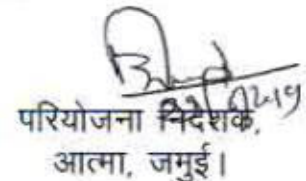 परियोजना निदेशक,
आत्मा, जमुई।